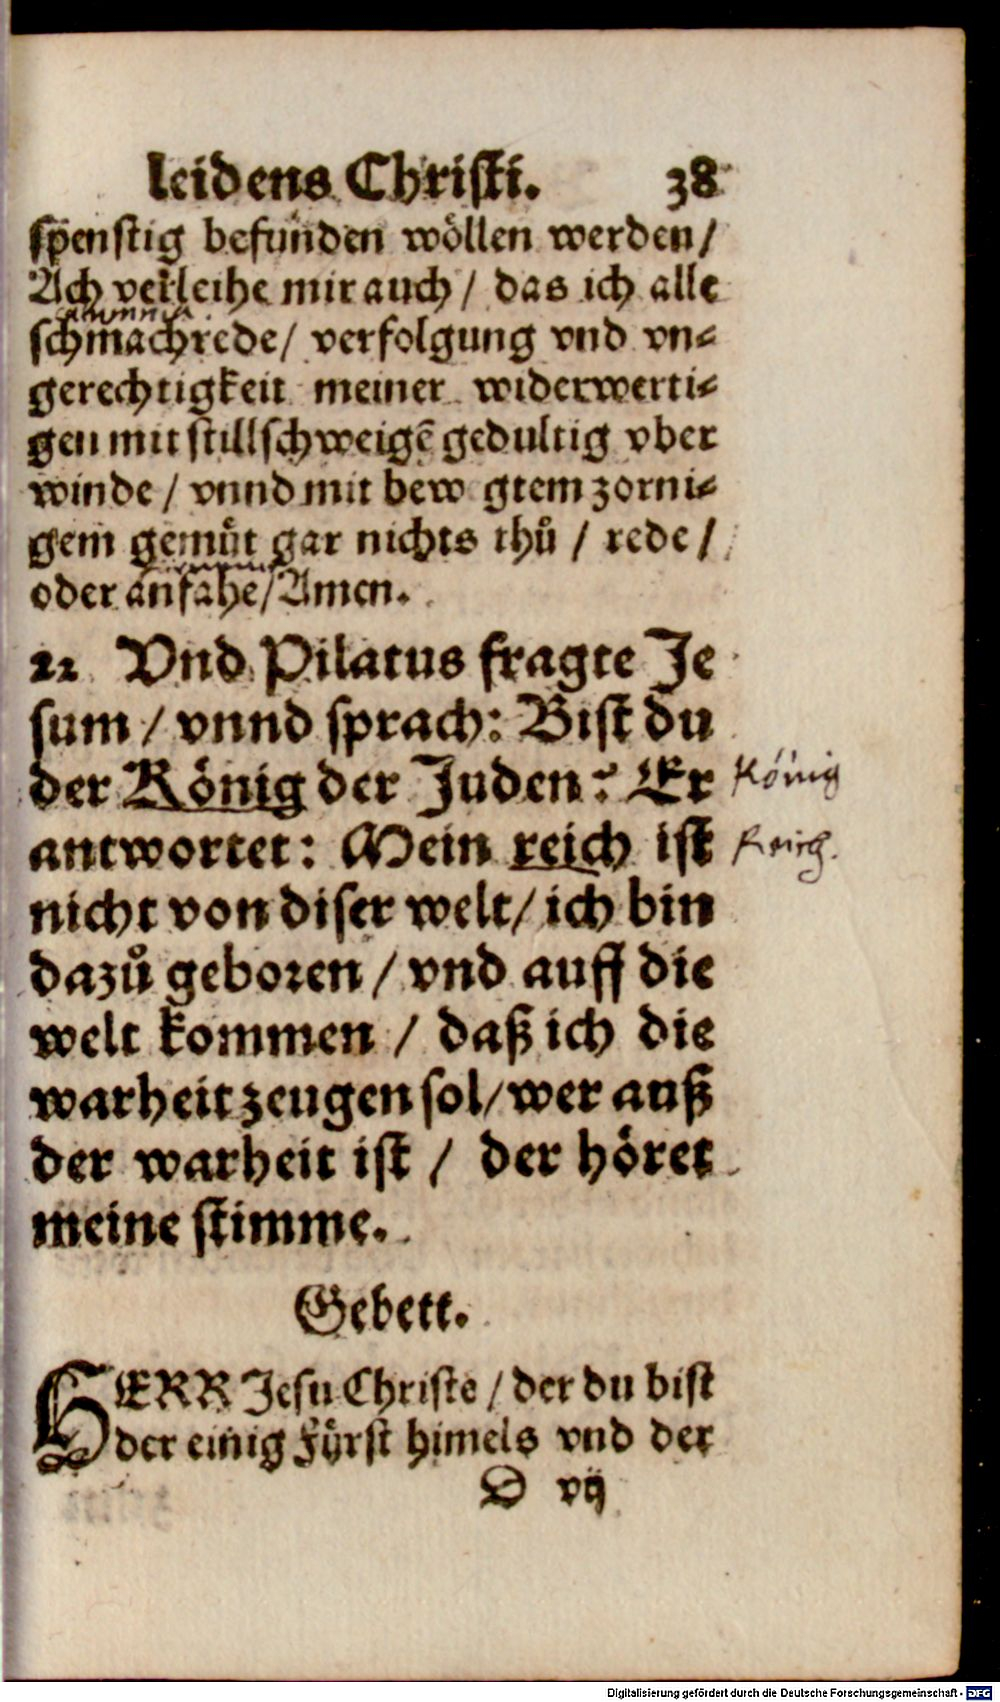 leidens Christi. 38
spenstig befunden wöllen werden/
Ach verleihe mir auch / das ich alle
schmachrede/ verfolgung vnd vn⸗
gerechtigkeit meiner widerwerti⸗
gen mit stillschweigē gedultig vber
winde / vnnd mit bew gtem zorni⸗
gem gemüt gar nichts thů / rede /
oder anfahe/ Amen.
22 Vnd Pilatus fragte Je
sum / vnnd sprach: Bist du
der König der Juden? Er König
antwortet: Mein reich ist Reich.
nicht von diser welt/ ich bin
dazů geboren / vnd auff die
welt kommen / daß ich die
warheit zeugen sol/ wer auß
der warheit ist / der höret
meine stimme.
Gebett.
HERR Jesu Christe / der du bist
der einig Fürst himels vnd der
D vij
Digitalisierung gefördert durch die Deutsche Forschungsgemeinschaft - DFG